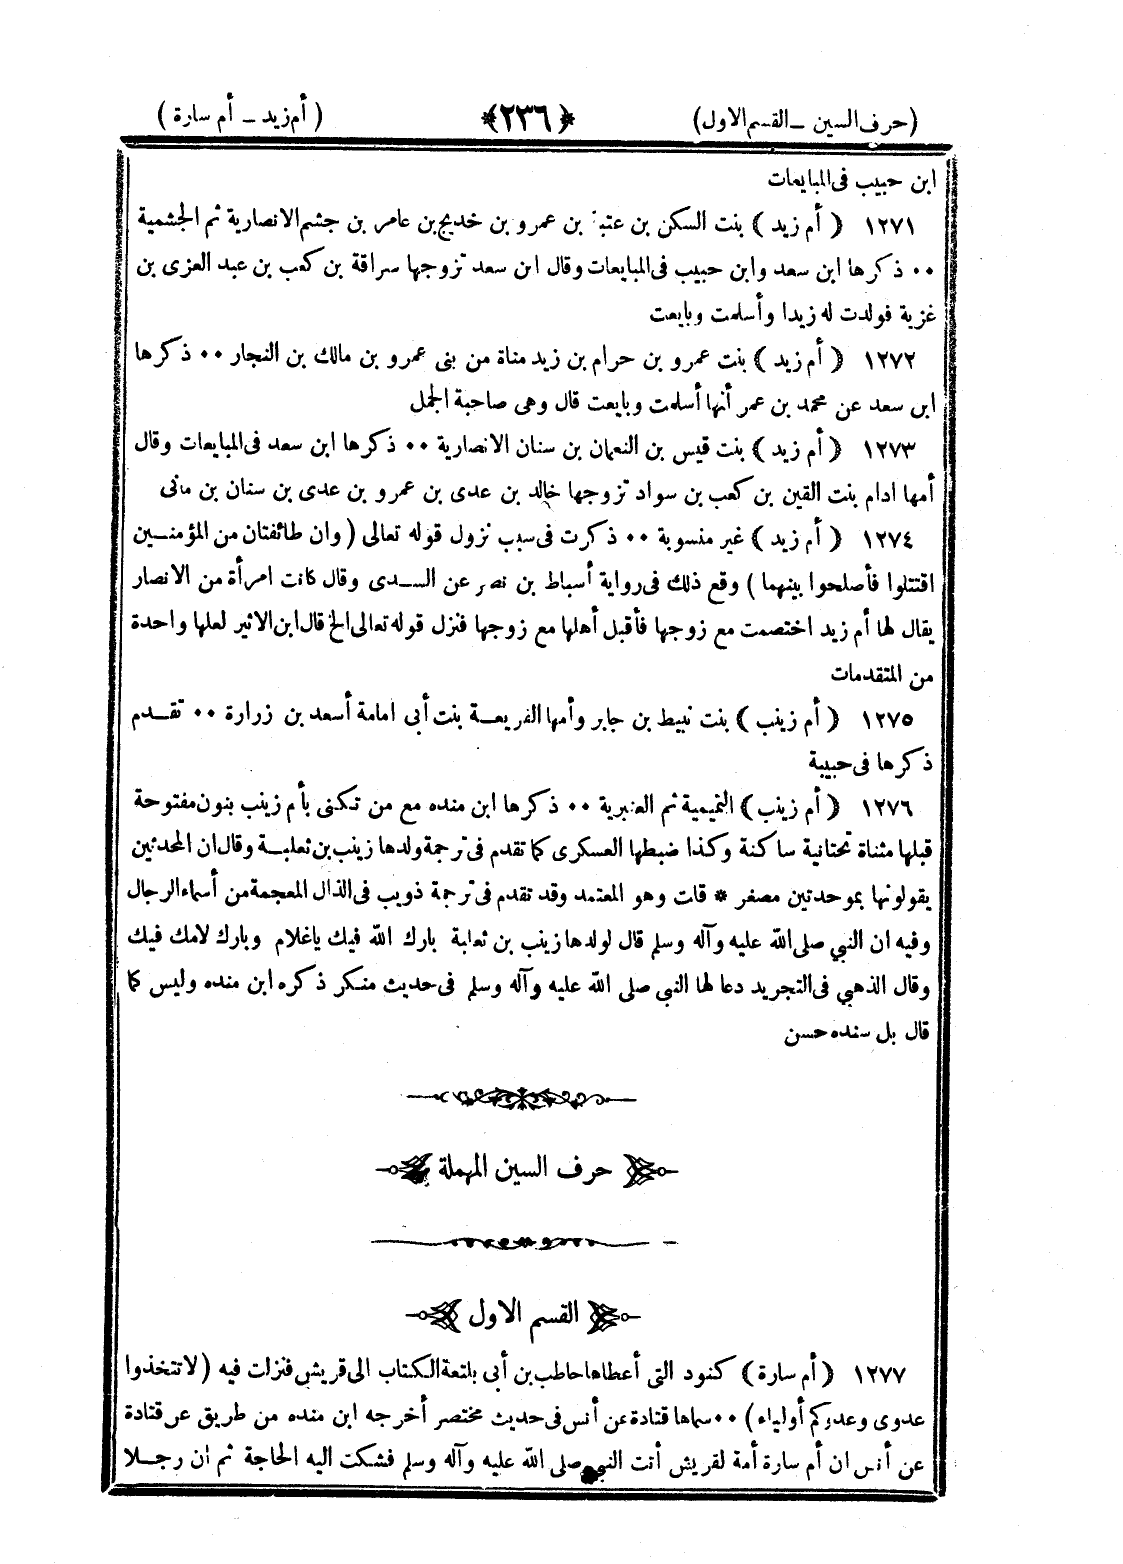 (حرف السين – القسم الاول) ﴿٢٣٦﴾ ( أم زيد – أم سارة )
ابن حبيب فى المبايعات
١٢٧١ ( أم زيد ) بنت السكن بن عتبة بن عمرو بن خديج بن عامر بن جشم الانصارية ثم الجشمية
٠٠ ذكرها ابن سعد وابن حبيب فى المبايعات وقال ابن سعد تزوجها سراقة بن كعب بن عبد العزى بن
غزية فولدت له زيدا وأسلمت وبايعت
١٢٧٢ ( أم زيد ) بنت عمرو بن حرام بن زيد مناة من بنى عمرو بن مالك بن النجار ٠٠ ذكرها
ابن سعد عن محمد بن عمر أنها أسلمت وبايعت قال وهى صاحبة الجمل
١٢٧٣ ( أم زيد ) بنت قيس بن النعمان بن سنان الانصارية ٠٠ ذكرها ابن سعد فى المبايعات وقال
أمها ادام بنت القين بن كعب بن سواد تزوجها خالد بن عدى بن عمرو بن عدى بن سنان بن مانى
١٢٧٤ ( أم زيد ) غير منسوبة ٠٠ ذكرت فى سبب نزول قوله تعالى ( وان طائفتان من المؤمنين
اقتتلوا فأصلحوا بينهما ) وقع ذلك فى رواية أسباط بن نصر عن السدى وقال كانت امرأة من الانصار
يقال لها أم زيد اختصمت مع زوجها فأقبل أهلها مع زوجها فنزل قوله تعالى الخ قال ابن الاثير لعلها واحدة
من المتقدمات
١٢٧٥ ( أم زينب ) بنت نبيط بن جابر وأمها الفريعة بنت أبى امامة أسعد بن زرارة ٠٠ تقدم
ذكرها فى حبيبة
١٢٧٦ ( أم زينب ) التميمية ثم العنبرية ٠٠ ذكرها ابن منده مع من تكنى بأم زينب بنون مفتوحة
قبلها مثناة تحتانية ساكنة وكذا ضبطها العسكرى كما تقدم فى ترجمة ولدها زينب بن ثعلبة وقال ان المحدثين
يقولونها بموحدتين مصغر * قات وهو المعتمد وقد تقدم فى ترجمة ذويب فى الذال المعجمة من أسماء الرجال
وفيه ان النبي صلى الله عليه وآله وسلم قال لولدها زينب بن ثعلبة بارك الله فيك ياغلام وبارك لامك فيك
وقال الذهبي فى التجريد دعا لها النبي صلى الله عليه وآله وسلم فى حديث منكر ذكره ابن منده وليس كما
قال بل سنده حسن
حرف السين المهملة
القسم الاول
١٢٧٧ ( أم سارة ) كنود التى أعطاها حاطب بن أبى بلتعة الكتاب الى قريش فنزلت فيه ( لاتتخذوا
عدوى وعدوكم أولياء ) ٠٠ سماها قتادة عن أنس فى حديث مختصر أخرجه ابن منده من طريق عن قتادة
عن أنس ان أم سارة أمة لقريش أتت النبي صلى الله عليه وآله وسلم فشكت اليه الحاجة ثم ان رجلا